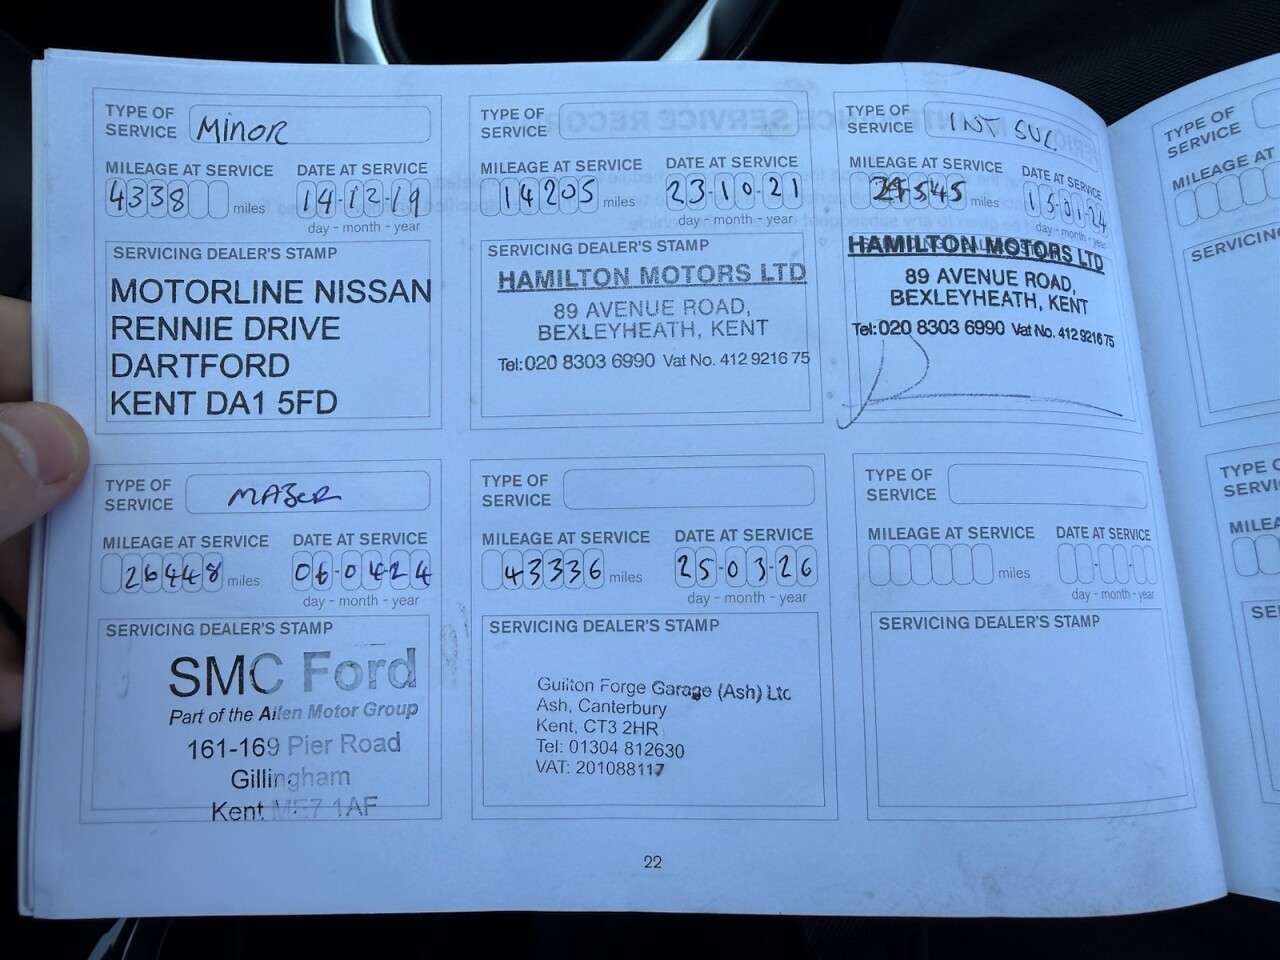 TYPE OF SERVICE Minor
MILEAGE AT SERVICE DATE AT SERVICE
4338 miles 14-12-19
day - month - year
SERVICING DEALER'S STAMP
MOTORLINE NISSAN
RENNIE DRIVE
DARTFORD
KENT DA1 5FD
TYPE OF SERVICE
MILEAGE AT SERVICE DATE AT SERVICE
14205 miles 23-10-21
day - month - year
SERVICING DEALER'S STAMP
HAMILTON MOTORS LTD
89 AVENUE ROAD,
BEXLEYHEATH, KENT
Tel: 020 8303 6990 Vat No. 412 9216 75
TYPE OF SERVICE INT SUL
MILEAGE AT SERVICE DATE AT SERVICE
miles 15-01-24
day - month - year
HAMILTON MOTORS LTD
89 AVENUE ROAD,
BEXLEYHEATH, KENT
Tel: 020 8303 6990 Vat No. 412 9216 75
TYPE OF SERVICE
MILEAGE AT SERVICE DATE AT SERVICE
26448 miles 06-04-24
day - month - year
SERVICING DEALER'S STAMP
SMC Ford
Part of the Allen Motor Group
161-169 Pier Road
Gillingham
Kent ME7 1AF
TYPE OF SERVICE
MILEAGE AT SERVICE DATE AT SERVICE
43336 miles 25-03-26
day - month - year
SERVICING DEALER'S STAMP
Guilton Forge Garage (Ash) Ltd
Ash, Canterbury
Kent, CT3 2HR
Tel: 01304 812630
VAT: 201088117
TYPE OF SERVICE
MILEAGE AT SERVICE DATE AT SERVICE
miles
day - month - year
SERVICING DEALER'S STAMP
22
TYPE OF
SERVICE
MILEAGE AT